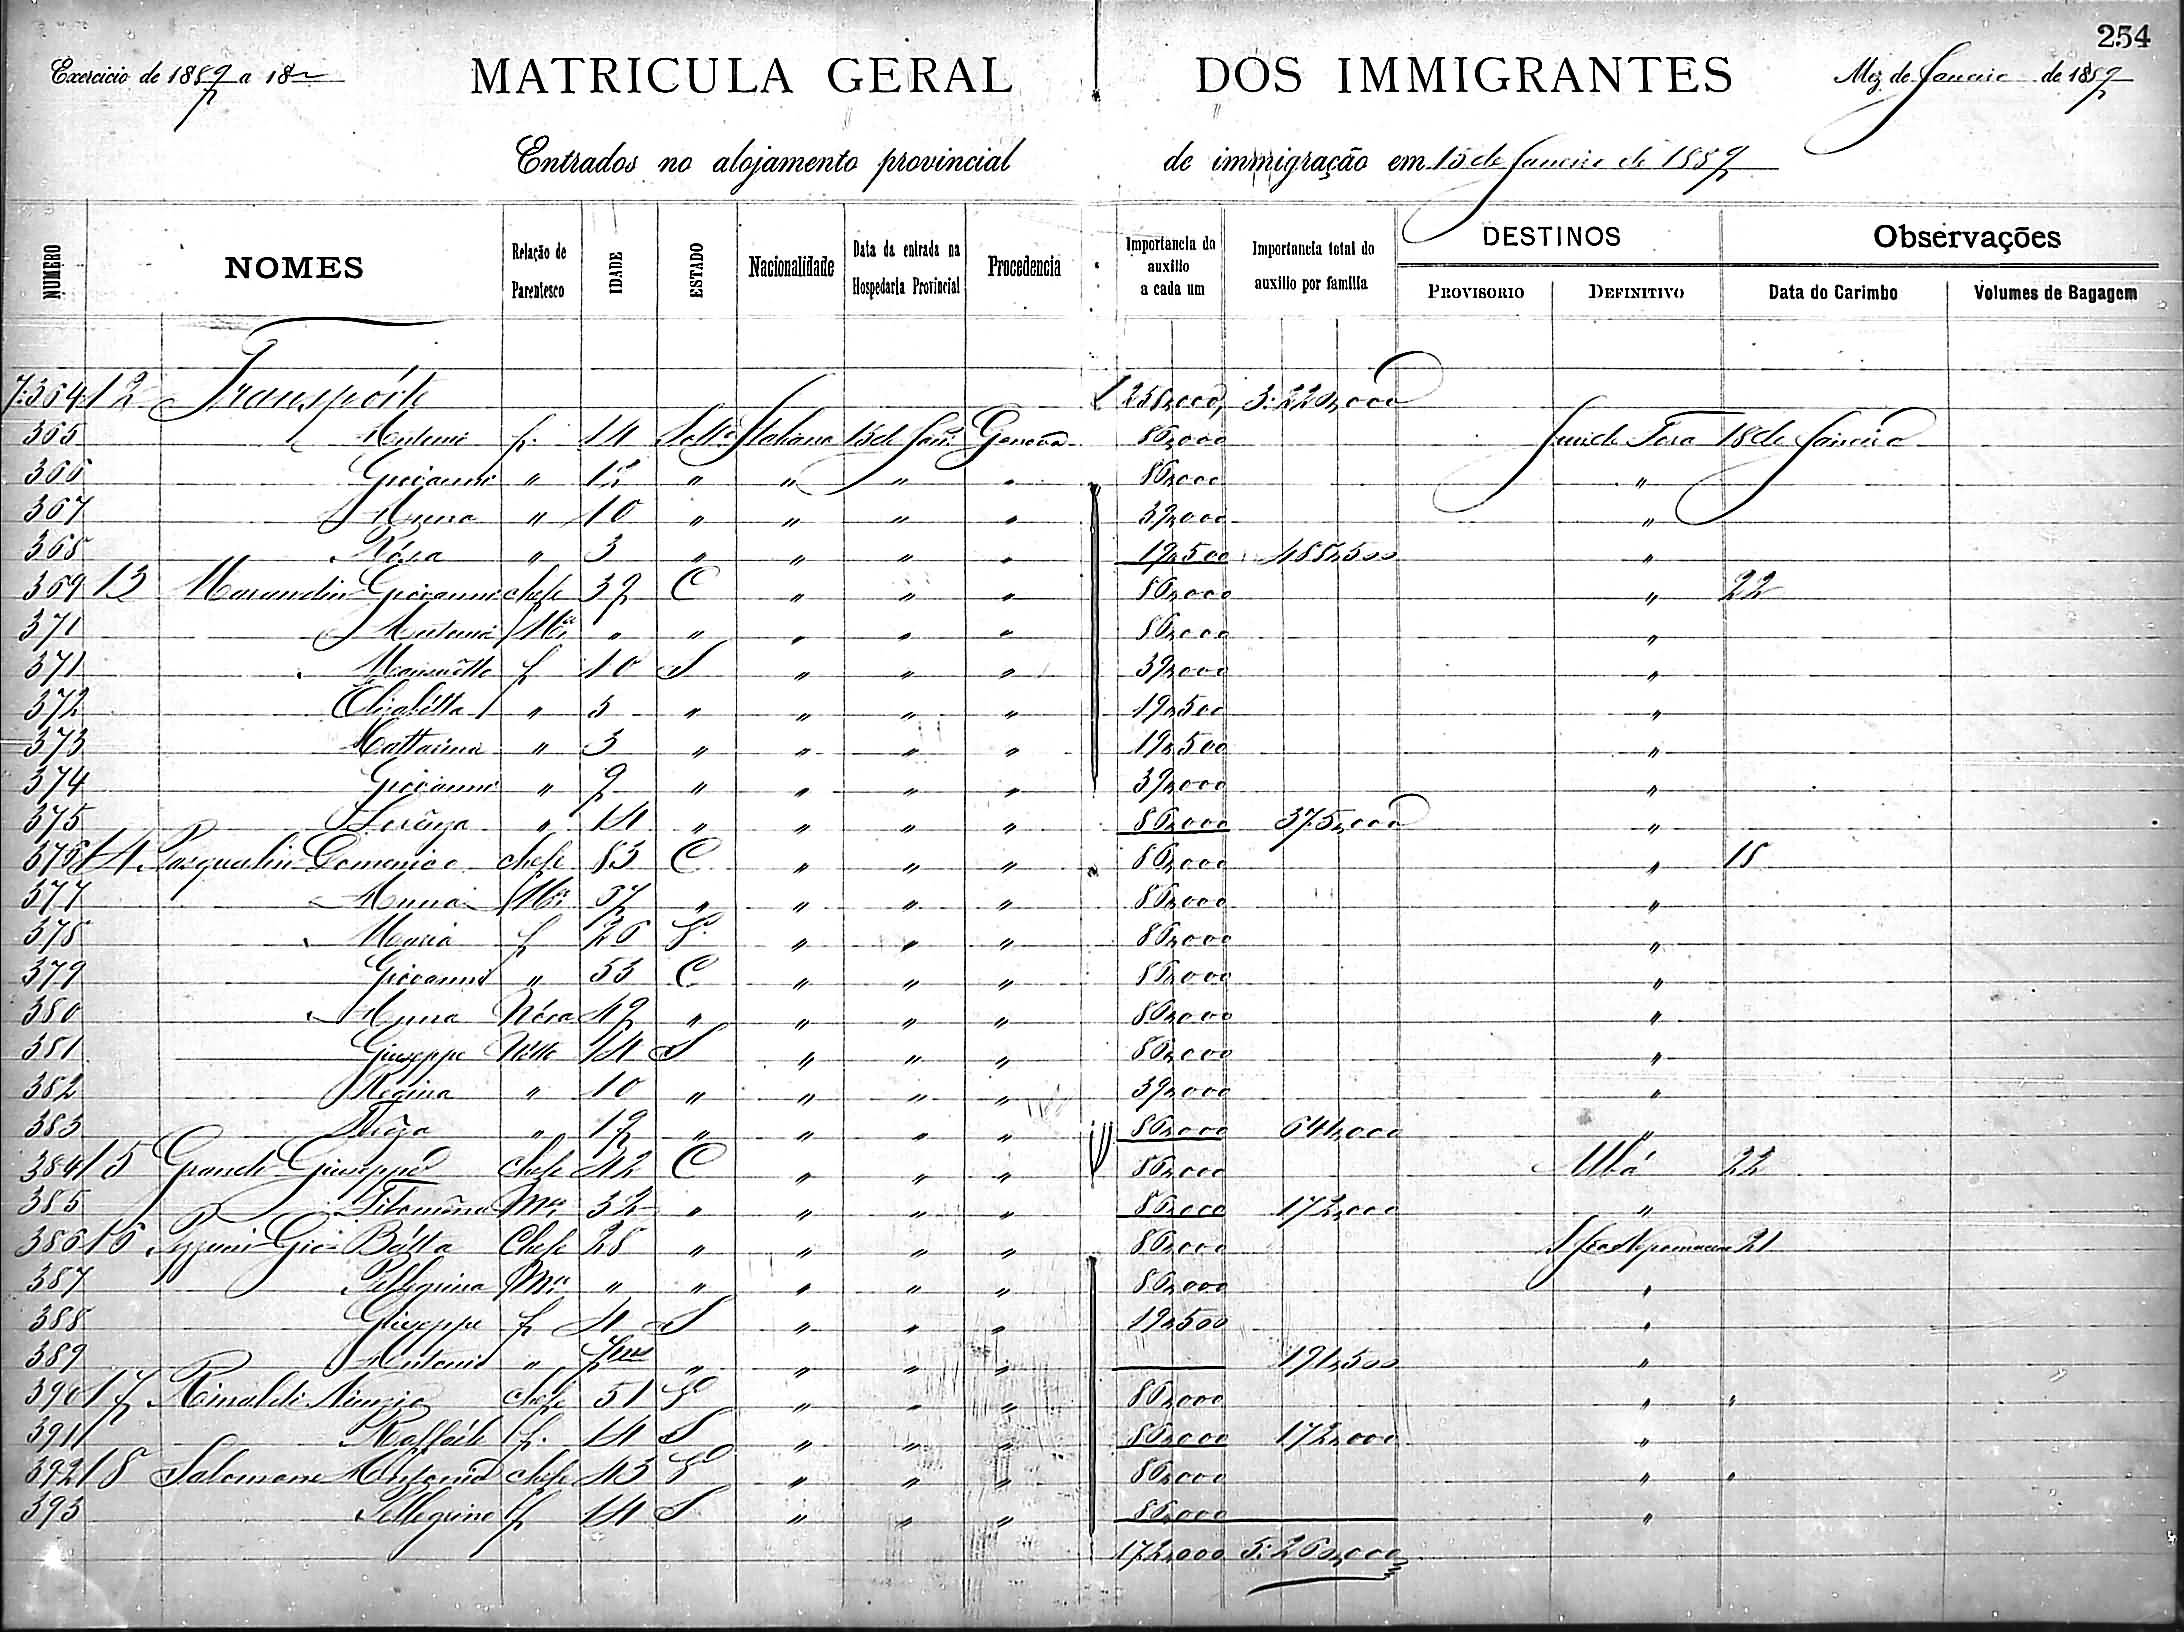 254
Exercicio de 1889 a 18
MATRICULA GERAL DOS IMMIGRANTES
Mez de Janeiro de 1889
Entrados no alojamento provincial de immigração em 15 de Janeiro de 1889
NUMERO NOMES Relação de Parentesco IDADE ESTADO Nacionalidade Data da entrada na Hospedaria Provincial Procedencia Importancia do auxilio a cada um Importancia total do auxilio por familia DESTINOS PROVISORIO DEFINITIVO Observações Data do Carimbo Volumes de Bagagem
7:364 12 Transpórte 258,000 3:220,000
365 Antonio f. 14 Italiana 15 de Genova 86,000 18 de Janeiro
366 Giovanni " 12 " " " " 86,000 "
367 Anna " 10 " " " " 39,000 "
368 Rósa " 3 " " " " 19,500 "
369 13 Giovanni chefe 39 C " " " 86,000 " 22
371 Mer " " " " " 86,000 "
371 f 10 S " " " 39,000 "
372 Elisabétta " 3 " " " " 19,500 "
373 " 3 " " " " 19,500 "
374 Giovanni " 9 " " " " 39,000 "
375 " 14 " " " " 86,000 375,000 "
376 14 Pasqualin Domenico chefe 83 C " " " 86,000 " 18
377 Anna Mer 37 " " " " 86,000 "
378 Maria f 26 " " " 86,000 "
379 Giovanni " 53 C " " " 86,000 "
380 Anna Nóra 49 " " " " 86,000 "
381 Giuseppe Nétto 14 S " " " 86,000 "
382 Regina " 10 " " " " 39,000 "
383 " 19 " " " " 86,000 641,000 "
384 15 Grande Giuseppe Chefe 42 C " " " 86,000 Ubá 22
385 Filomena Mer 32 " " " " 86,000 172,000 "
386 16 Gio Batta Chefe 28 " " " " 86,000 Nepomuceno 21
387 Pellegrina Mer " " " " " 86,000 "
388 Giuseppe f 4 S " " " 19,500 "
389 Antonio " " " " " 191,500 "
390 17 Rinaldi chefe 51 " " " 86,000 " "
391 Raffaele f. 14 S " " " 86,000 172,000 "
392 18 Salomone Antonio chefe 43 " " " 86,000 " "
393 Pellegrino f 14 S " " " 86,000 "
172,000 5:260,000